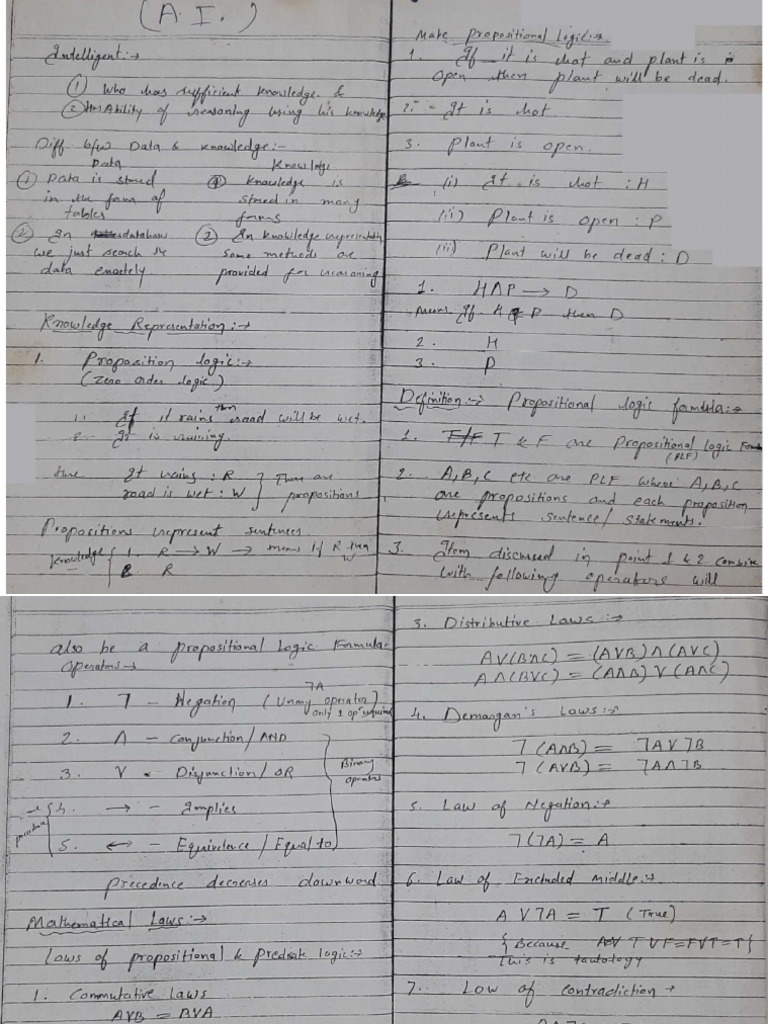 (A.I.)
Intelligent:→
① Who has sufficient knowledge. &
② Has Ability of reasoning using his knowledge
Diff b/w Data & knowledge:-
Data
① Data is stored
in the form of
tables
② In database
we just search the
data exactely
Knowledge
① knowledge is
stored in many
forms
② In knowledge representation
some methods are
provided for reasoning
Knowledge Representation:→
1. Proposition logic:→
(Zero order logic)
1. If it rains then road will be wet.
2. It is raining.
here It rains : R
road is wet : W
There are
propositions
Propositions represent sentences
Knowledge
1. R → W → means if R then W
2. R
Make Propositional Logic:→
1. If it is hot and plant is
open then plant will be dead.
2. It is hot.
3. Plant is open.
(i) It is hot : H
(ii) Plant is open : P
(iii) Plant will be dead : D
1. H∧P → D
Means If H & P then D
2. H
3. P
Definition:→ Propositional logic formula:→
1. T & F are Propositional logic
(PLF)
2. A, B, C etc are PLF where A, B, C
are propositions and each proposition
represents sentence/statements.
3. Item discussed in point 1 & 2 combine
with following operators will
also be a propositional Logic Formula.
Operators→
1. ¬ - Negation (Unary operator)
¬A
only 1 opr required
2. ∧ - Conjunction/AND
3. ∨ - Disjunction/OR
4. → - Implies
5. ↔ - Equivalence/Equal to
Binary
operator
Precedence decreases downword
Mathematical Laws:→
Laws of propositional & Predicate logic:→
1. Commutative Laws
A∨B = B∨A
3. Distributive Laws:→
A∨(B∧C) = (A∨B)∧(A∨C)
A∧(B∨C) = (A∧B)∨(A∧C)
4. Demorgan's Laws:→
¬(A∧B) = ¬A∨¬B
¬(A∨B) = ¬A∧¬B
5. Law of Negation:→
¬(¬A) = A
6. Law of Excluded Middle:→
A∨¬A = T (True)
{Because T∨F=F∨T=T}
This is tautology
7. Low of contradiction→